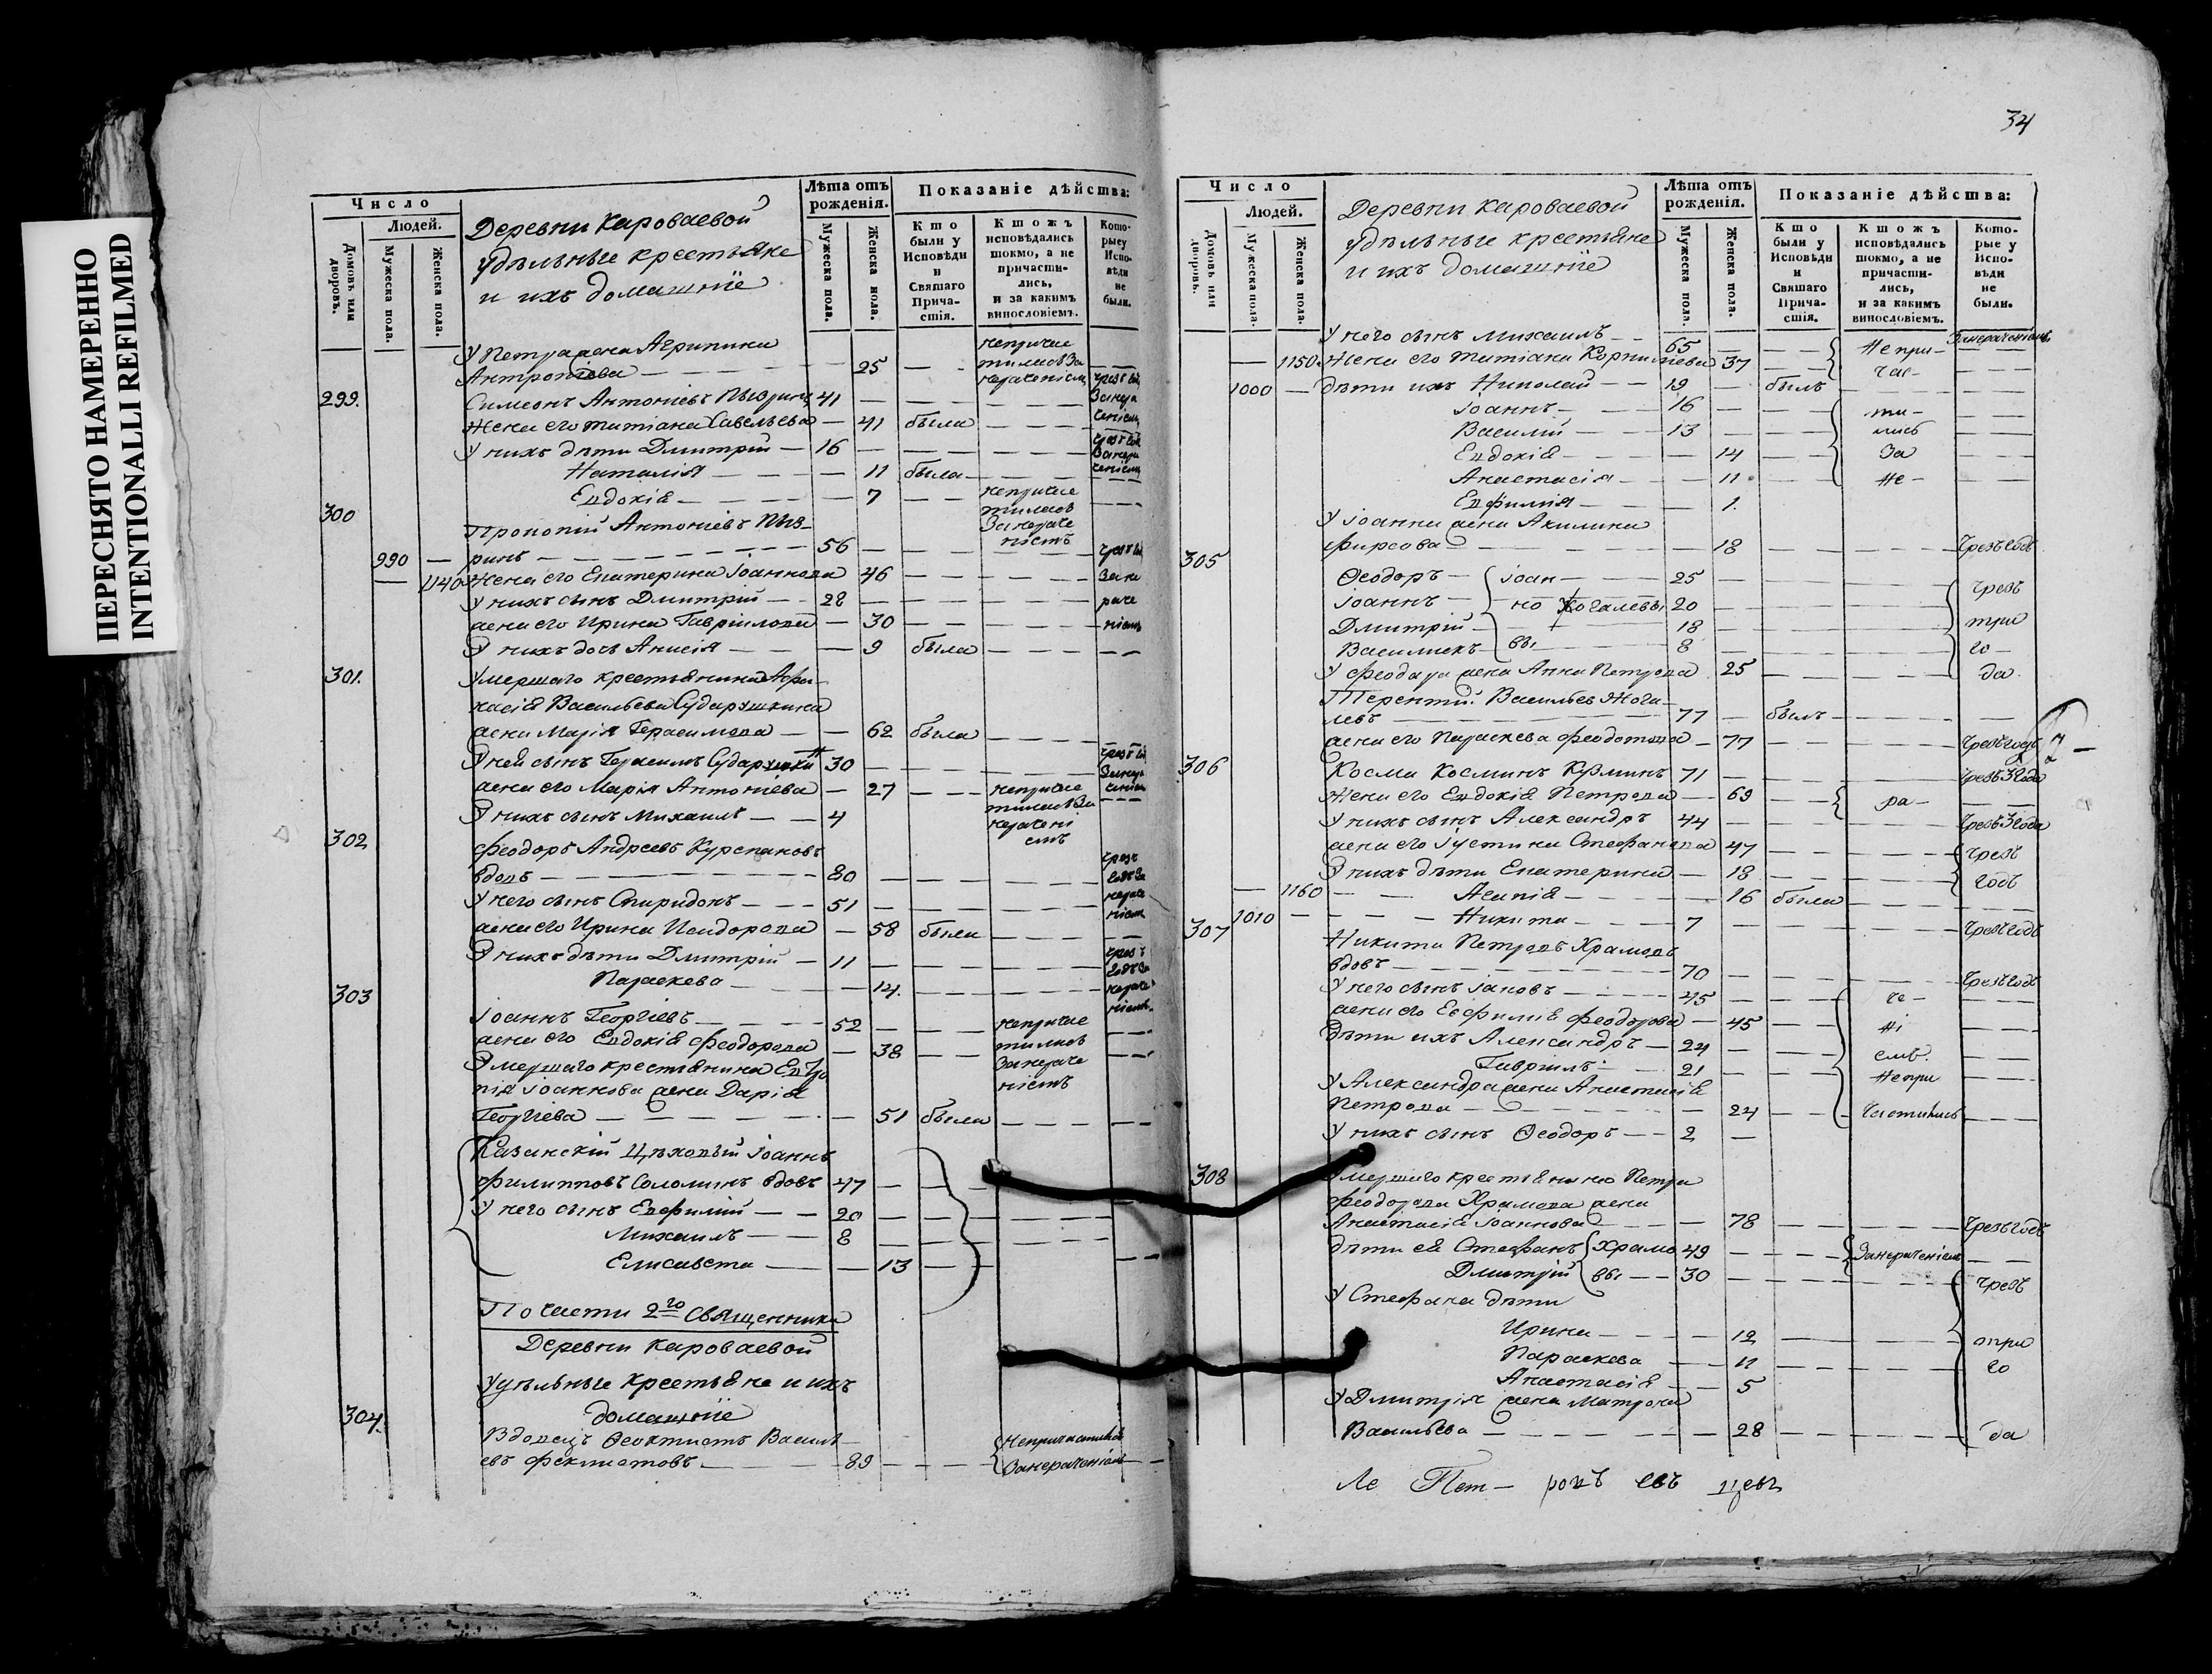 ПЕРЕСНЯТО НАМЕРЕННО
INTENTIONALLI REFILMED
Число
Людей.
Домовъ или дворовъ.
Мужеска пола.
Женска пола.
Деревни Кароваевой
удѣльные крестьяне
и ихъ домашніе
Лѣта отъ рожденія.
Мужеска пола.
Женска пола.
Показаніе дѣйства:
Кто были у Исповѣди и Святаго Причастія.
Кто жъ исповѣдались токмо, а не причастились, и за какимъ винословіемъ.
Которые у Исповѣди не были.
У Петра жена Агрипина
Антропіева 25 непричастилась За нераченіемъ
299. Симеонъ Антоніевъ 41
Жена его Татіана Савельева 41 была
У нихъ дѣти Дмитрій 16
Наталія 11 была
Евдокія 7 непричастилась За нераченіемъ
300 Прокопій Антоніевъ
990 ринъ 56
1140 Жена его Екатерина Іоаннова 46
У нихъ сынъ Дмитрій 28
жена его Ирина Гаврилова 30
У нихъ дочь Анисія 9 была
301. Умершаго крестьянина Афа-
насія Васильева Сударушкина
жена Марія Герасимова 62 была
У ней сынъ Герасимъ 30
жена его Марія Антоніева 27 непричастилась За нераченіемъ
У нихъ сынъ Михаилъ 4
302 Феодоръ Андреевъ Курепановъ
вдовъ 80
У него сынъ Спиридонъ 51
жена его Ирина Исидорова 58 была
У нихъ дѣти Дмитрій 11
Параскева 14.
303 Іоаннъ Георгіевъ 52
жена его Евдокія Феодорова 38
Умершаго крестьянина
пія Іоаннова жена Дарія
Георгіева 51 была
Казанскій Цѣховый Іоаннъ
Филипповъ Соломинъ вдовъ 47
У него сынъ Евфимій 20
Михаилъ 8
Елисавета 13
По части 2го Священника
Деревни Кароваевой
удѣльные крестьяне и ихъ
домашніе
304. Вдовецъ Ѳеоктистъ Василь-
евъ Феклистовъ 89 Непричастился Занераченіемъ
34
Число
Людей.
Домовъ или дворовъ.
Мужеска пола.
Женска пола.
Деревни Кароваевой
удѣльные крестьяне
и ихъ домашніе
Лѣта отъ рожденія.
Мужеска пола.
Женска пола.
Показаніе дѣйства:
Кто были у Исповѣди и Святаго Причастія.
Кто жъ исповѣдались токмо, а не причастились, и за какимъ винословіемъ.
Которые у Исповѣди не были.
У него сынъ Михаилъ 65 Занераченіемъ
1150 Жена его Татіана Корнильева 37 Непри-
час-
1000 Дѣти ихъ Николай 19 былъ
Іоаннъ 16 ти-
Василій 13 лись
Евдокія 14 За
Анастасія 11 не-
Евфимія 1.
У Іоанна жена Акилина
Фирсова 18 Чрезъ годъ
305 Ѳеодоръ Іоан- 25 чрезъ
Іоаннъ но Жогалевы 20
Дмитрій 18 три
Василискъ вы 8 го-
У Феодора жена Анна Петрова 25 да.
Терентій Васильевъ Жога-
левъ 77 былъ
жена его Параскева Феодотова 77 Чрезъ годъ
306 Косма Косминъ Кузминъ 71 чрезъ 3 года
Жена его Евдокія Петрова 69 ра-
У нихъ сынъ Александръ 44 Чрезъ 3 года
жена его Іустина Стефанова 47 чрезъ
У нихъ дѣти Екатерина 18 годъ
1160 Агапія 16 была
1010 Никита 7 Чрезъ годъ
307 Никита Петровъ Храмовъ
вдовъ 70 Чрезъ годъ
У него сынъ Іаковъ 45 че-
жена его Евфимія Феодорова 45 ні-
Дѣти ихъ Александръ 24 емъ.
Гавріилъ 21 Непри
У Александра жена Анастасія
Петрова 24 частились
У нихъ сынъ Ѳеодоръ 2
308 Умершаго крестьянина Петра
Феодорова Храмова жена
Анастасія Іоаннова 78 Чрезъ годъ
Дѣти ея Стефанъ Храмо 49 Занераченіемъ
Дмитрій вы 30 чрезъ
У Стефана дѣти
Ирина 12 три
Параскева 11 го
Анастасія 5
У Дмитрія жена Матрона
Васильева 28 да
Ле Пет- ровъ евъ цевъ